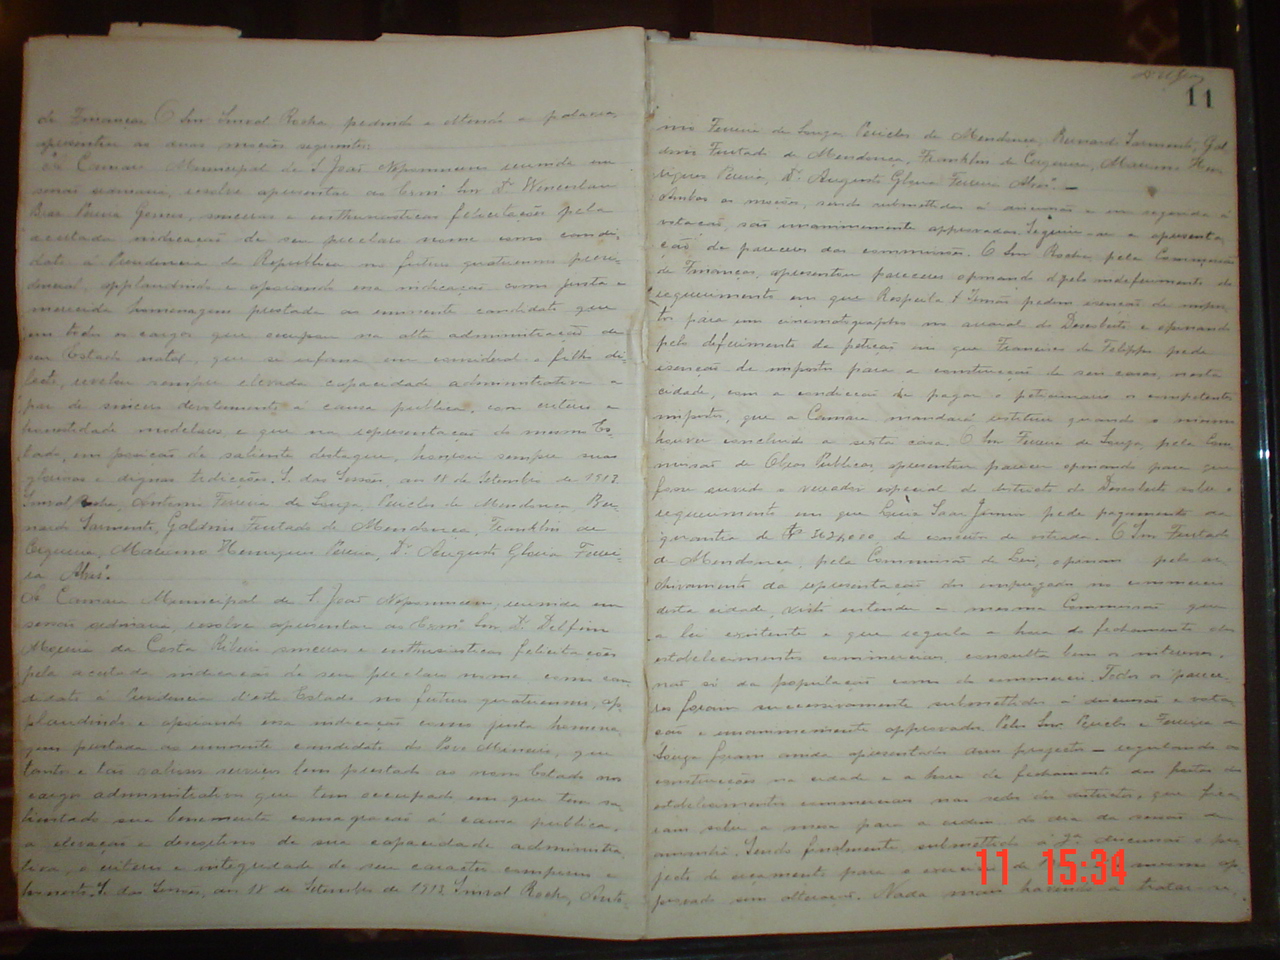 de Finanças O Snr Sinval Rocha pedindo e obtendo a palavra,
apresentou as duas moções seguintes:
"A Camara Municipal de S. João Nepomuceno reunida em
sessão, resolve apresentar ao Exmº Snr Dr Wenceslau
Braz Pereira Gomes, sinceras e enthusiasticas felicitações pela
acertada indicação de seu preclaro nome como candi-
dato á Presidencia da Republica no futuro quatriennio presi-
dencial, applaudindo e apoiando essa indicação como justa e
merecida homenagem prestada ao eminente candidato que
em todos os cargos que occupou na alta administração de
seu Estado natal, que se ufana em consideral-o filho di-
lecto, revelou sempre elevada capacidade administrativa a
par de sincero devotamento á causa publica, com criterio e
honestidade modelares e que na representação do mesmo Es-
tado, em posição de saliente destaque, honrou sempre suas
gloriosas e dignas tradicções. S. das Sessões, aos 18 de Setembro de 1913
Sinval Rocha, Antonio Ferreira de Souza, Pericles de Mendonça, Ber-
nardo Sarmento, Galdino Furtado de Mendonça, Franklin de
Cerqueira, Maximo Henriques Pereira, Dr. Augusto Gloria Ferrei-
ra Alves."
"A Camara Municipal de S. João Nepomuceno, reunida em
sessão ordinaria, resolve apresentar ao Exmº Snr Dr Delfim
Moreira da Costa Ribeiro sinceras e enthusiasticas felicitações
pela acertada indicação de seu preclaro nome, como can-
didato á Presidencia d'este Estado no futuro quatriennio, ap-
plaudindo e apoiando essa indicação como justa homena-
gem prestada ao eminente candidato do Povo Mineiro, que
tantos e tão valiosos serviços tem prestado ao nosso Estado nos
cargos administrativos que tem occupado em que tem sa-
lientado sua benemerita consagração á causa publica,
a elevação e descortino de sua capacidade administra-
tiva, o criterio e integridade de seu caracter
S. das Sessões, aos 18 de Setembro de 1913. Sinval Rocha, Anto-
11
nio Ferreira de Souza, Pericles de Mendonça, Bernardo Sarmento, Gal-
dino Furtado de Mendonça, Franklin de Cerqueira, Maximo Hen-
riques Pereira, Dr. Augusto Gloria Ferreira Alves. —
Ambas as moções, sendo submettidas á discussão e em seguida á
votação, são unanimemente approvadas. Seguiu-se a apresenta-
ção de pareceres das commissões. O Snr Rocha, pela Commissão
de Finanças, apresentou pareceres opinando pelo indeferimento do
requerimento em que & Irmão pedem isenção de impos-
tos para um cinematographo no arraial do Descoberto e opinando
pelo deferimento da petição em que Francisco de Felippo pede
isenção de impostos para a construcção de seis casas, nesta
cidade, com a condicção de pagar o peticionario os competentes
impostos, que a Camara mandará restituir quando o mesmo
houver concluido a sexta casa. O Snr Ferreira de Souza, pela Com-
missão de Obras Publicas, apresentou parecer opinando para que
fosse ouvido o vereador especial do districto do Descoberto sobre o
requerimento em que Luiz pede pagamento da
quantia de de concerto de estrada. O Snr Furtado
de Mendonça, pela Commissão de Leis, opinou pelo ar-
chivamento da representação dos empregados no commercio
desta cidade, visto entender a mesma Commissão que
a lei existente e que regula a hora do fechamento dos
estabelecimentos commerciaes, consulta bem os interesses,
não só da população como do commercio. Todos os parece-
res foram successivamente submettidos á discussão e vota-
ção e unanimemente approvados. Pelos Snrs Pericles e Ferreira de
Souza foram ainda apresentados dous projectos — regulando as
construcções na cidade e a hora de fechamento das portas dos
estabelecimentos commerciaes nas sedes dos districtos, que fica-
ram sobre a mesa para a ordem do dia da sessão de
amanhã. Sendo finalmente submettido á 2ª discussão o pro-
jecto de orçamento para o exercicio de mesmo ap-
provado sem alteração. Nada mais havendo a tratar-se,
11 15:34